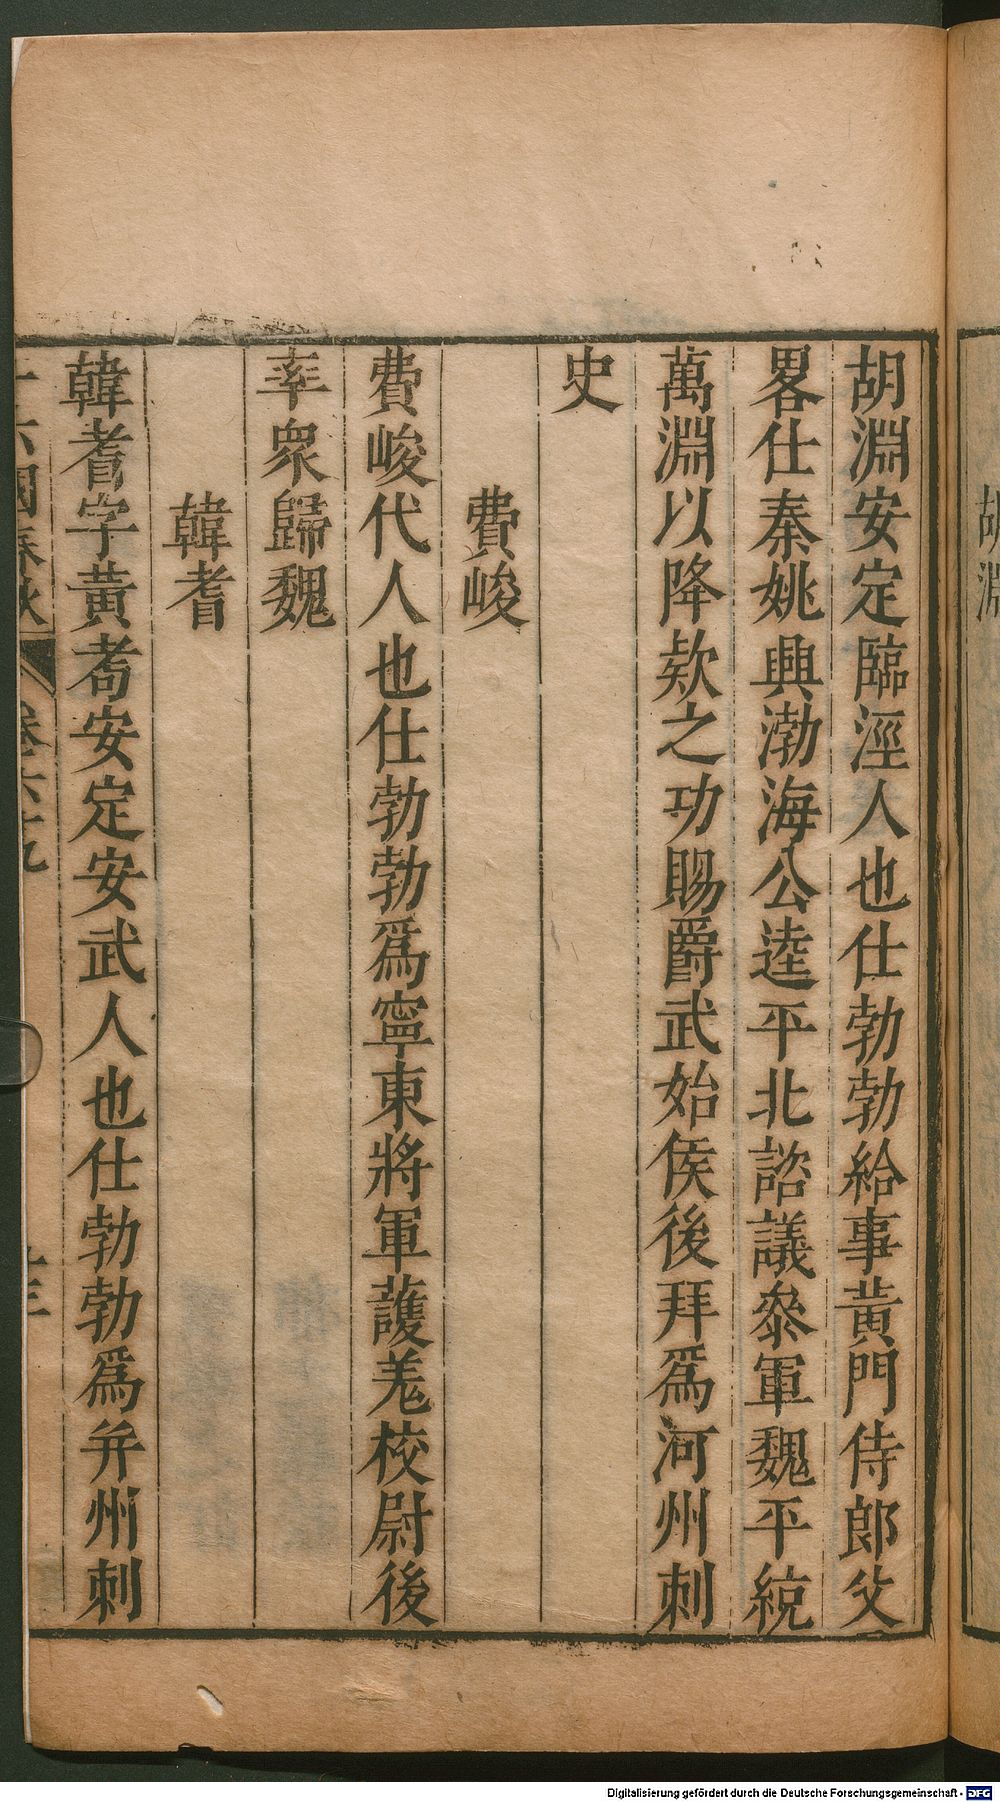 胡淵
胡淵安定臨涇人也仕勃勃給事黃門侍郎父
畧仕秦姚興渤海公逵平北諮議叅軍魏平統
萬淵以降欵之功賜爵武始侯後拜爲河州刺
史
費峻
費峻代人也仕勃勃爲寧東將軍護羗校尉後
率衆歸魏
韓耆
韓耆字黃耇安定安武人也仕勃勃爲并州刺
十六國春秋 卷六十九 十三
Digitalisierung gefördert durch die Deutsche Forschungsgemeinschaft - DFG